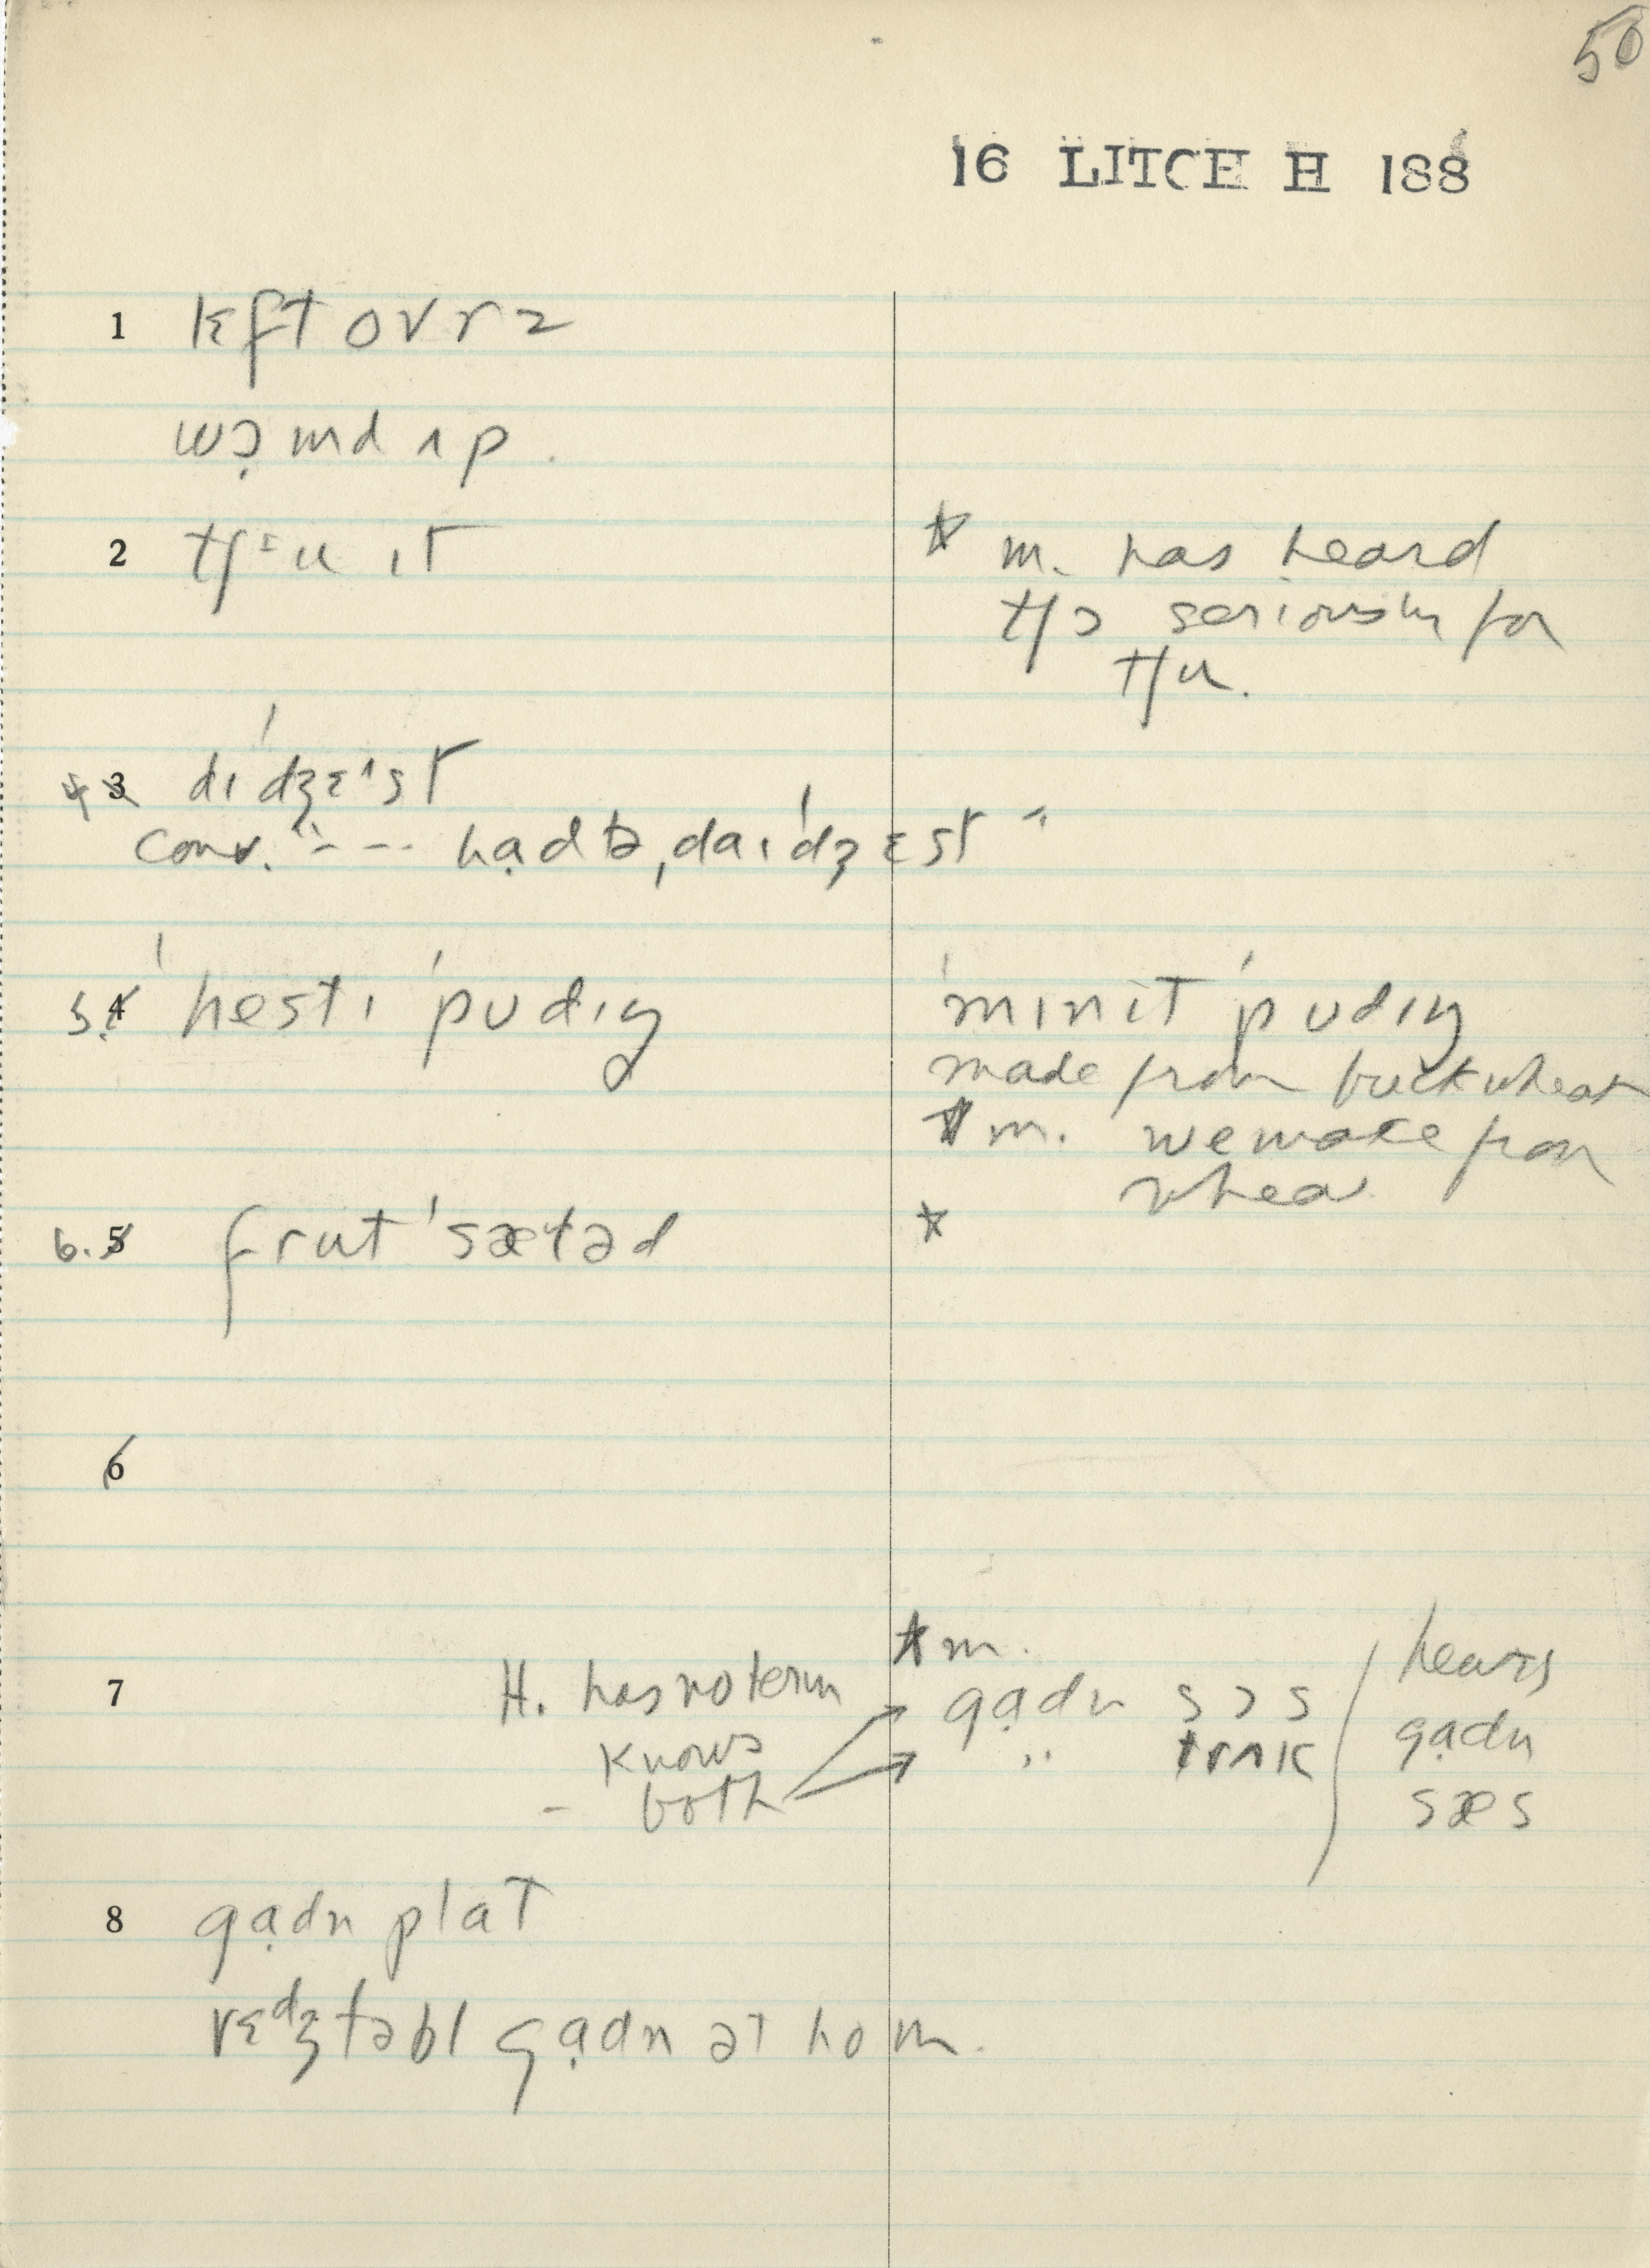 50
16 LITCH H 188
1 lɛft ovrz
wɔ̣rmd ʌp.
2 tʃɪu ɪt
* m. has heard
tʃɔ seriously for
tʃu.
4 3 dɪˈdʒɛˈst
conv. "--- hạd tə, daɪˈdʒɛst"
5. 4 ˈhestɪ ˈpudɪŋ
ˈmɪnɪt ˈpudɪŋ
made from buckwheat
* m. we make from
wheat
6. 5 frut ˈsæləd
*
6
7 H. has no term
knows
- both
* m.
gạdn sɔs
" trʌk
hears
gạdn
sæs
8 gạdn plat
vɛdʒtəbl gạdn ət hom.